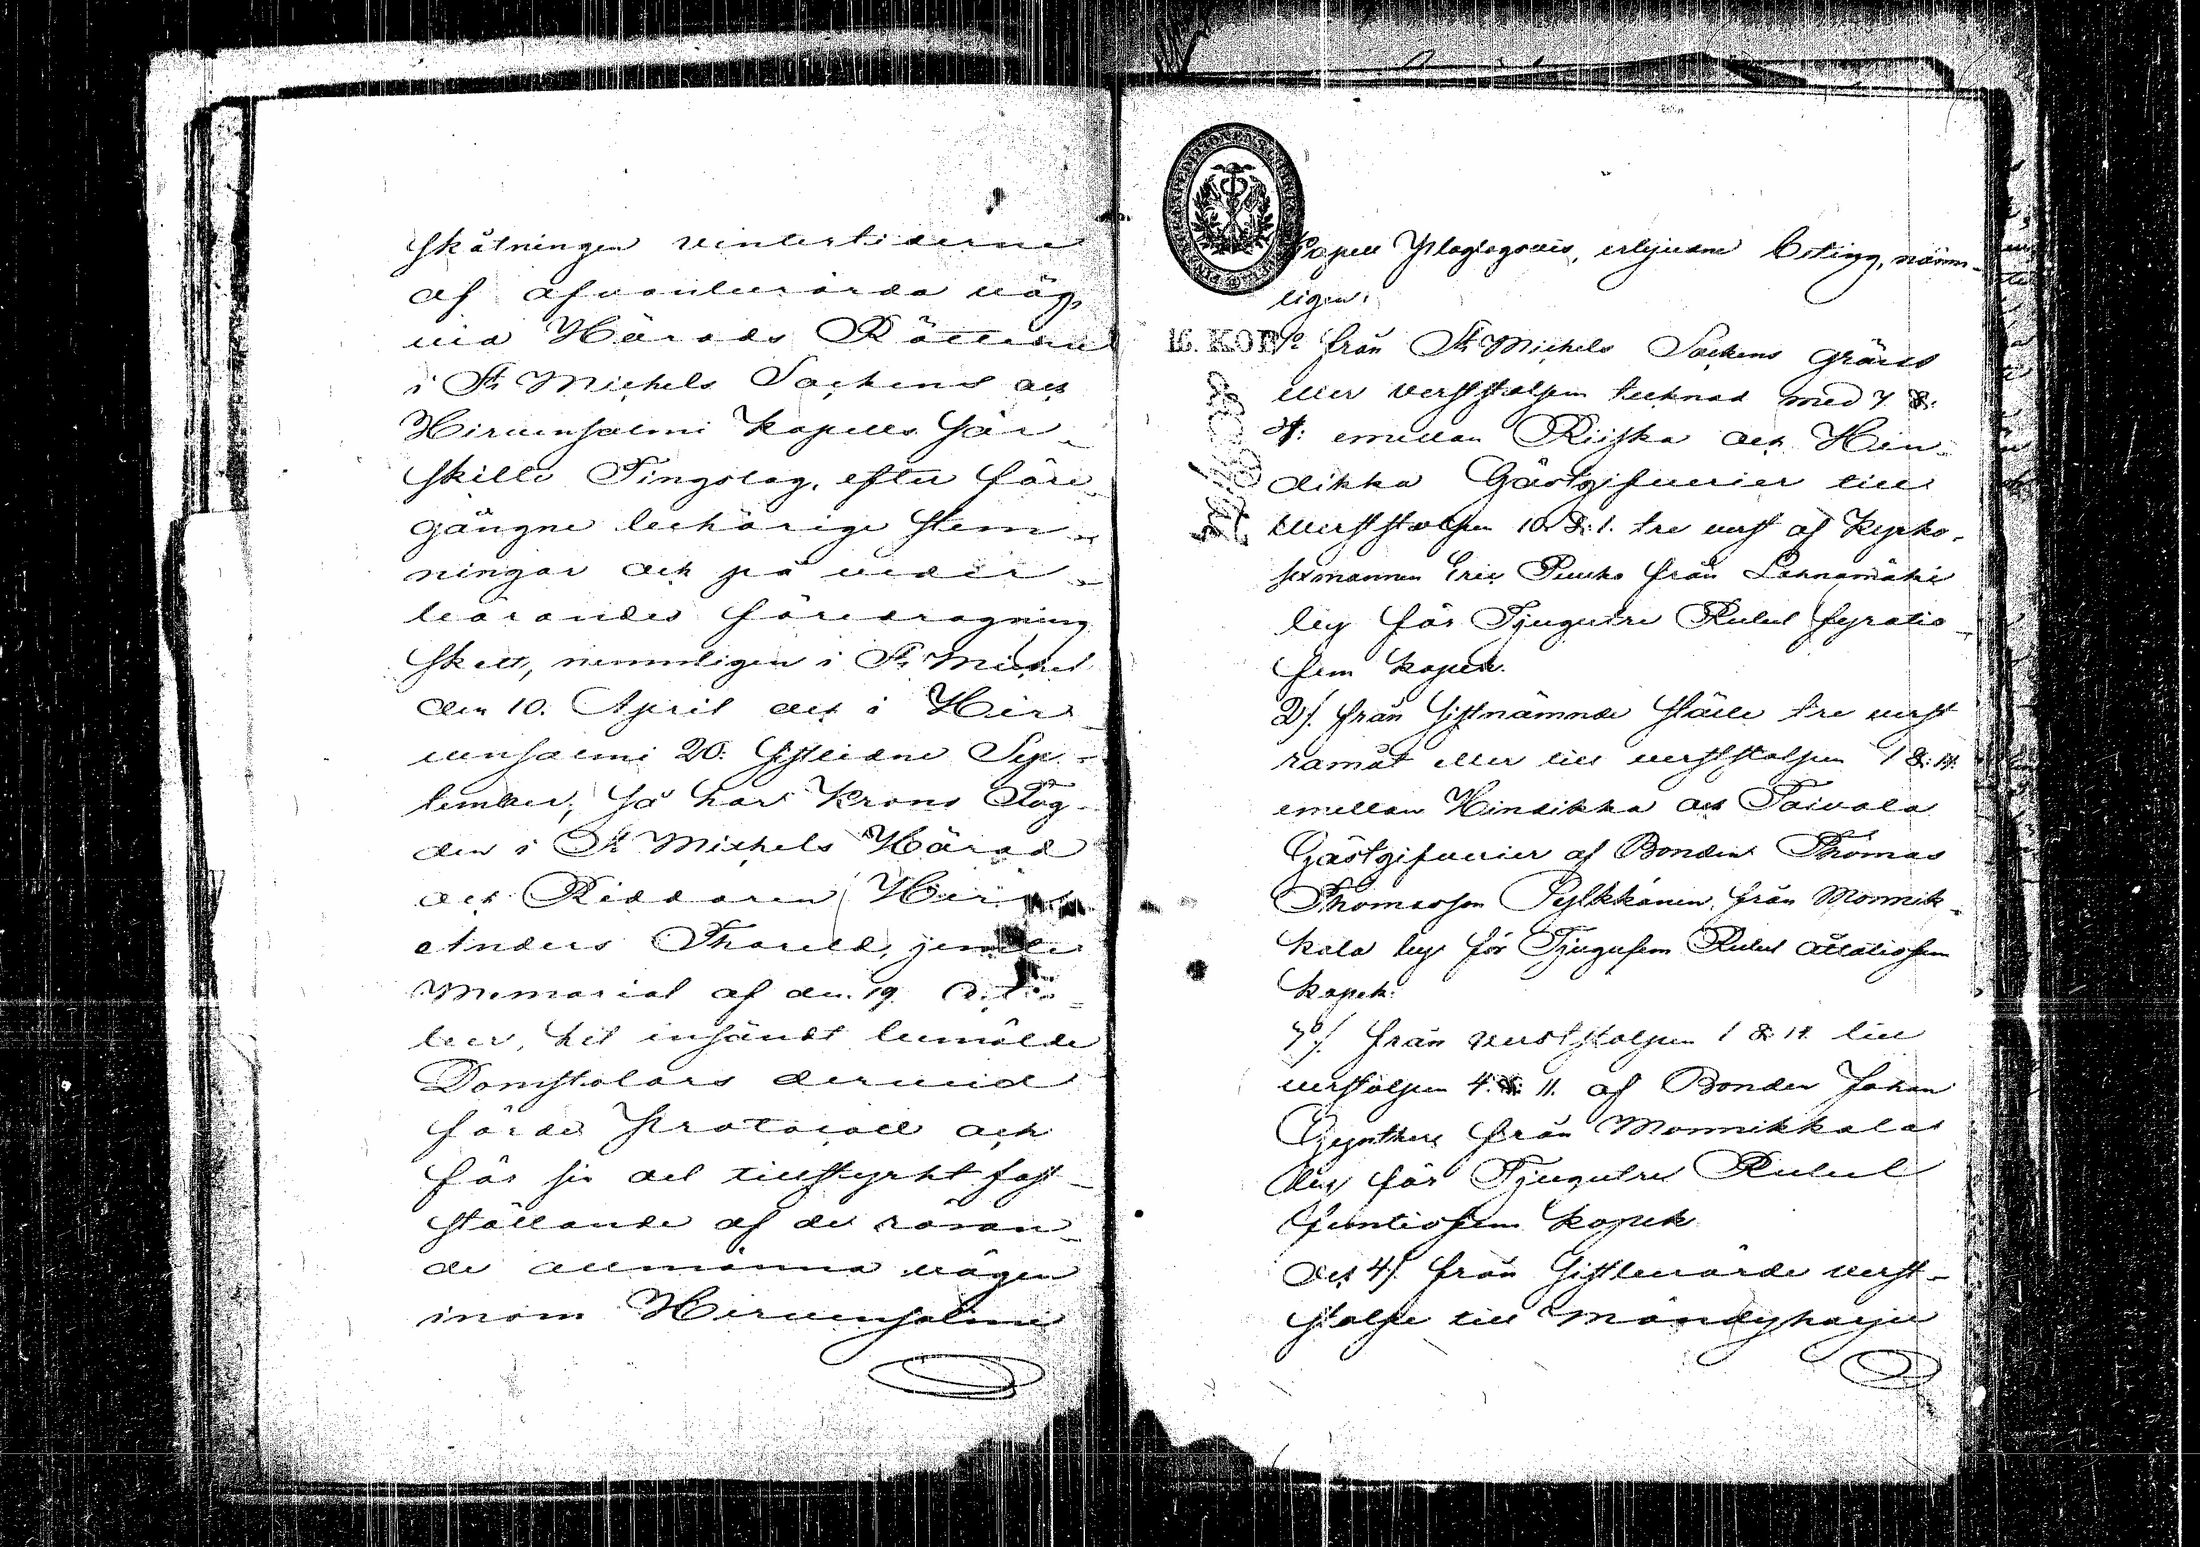 skåtningen vintertiderne
af afvanberörda väg,
vid Härads Rätterne
i St Michels Sockens och
Hirvensalmi Kapells sär-
skilte Tingslag, efter före-
gångne behörige stem-
ningar och på veder-
börandes föredragning
skett, nemmligen i St Michel
den 10. April och i Hir-
vensalmi 20. sistledne Sep-
tember; så har Krono Fog-
den i St Michels Härad
och Riddaren Herr
Anders Thoreld, jemte
Memorial af den 19. Octo-
ber, hit insändt bemälde
Domstolars dervid
förde Protocoll och
för sin del tillstyrkt fast-
ställande af de röran-
de allmänna vägen
inom Hirvensalmi
Kapell Yslagsgsvis, erbjudne beting, nämn-
ligen:
16. KOP.
1o från St Michels Sockens gräns
eller verststolpen tecknad med 7 &
8: emellan Riiska och Hin-
dikka Gästgifverier till
Verststolpen 10 & 1. tre verst af Kyrko-
sexmannen Eric Puuko från Lahnamäki
by för Tjugutre Rubel fyratio-
fem kopek.
2/. från sistnämnde ställe tre verst
framåt eller till verststolpen 1 & 14.
emellan Hindikka och Toivola
Gästgifverier af Bonden Thomas
Thomasson Pylkkänen från Monnik-
kala by för Tjugufem Rubel åttatiofem
kopek.
3o/. från verststolpen 1 & 14 till
verstolpen 4. & 11. af Bonden Johan
Gynther från Monnikkala
by för Tjugutre Rubel
femtiofem kopek
och 4/. från sistberörde verst-
stolpe till Mändyharju